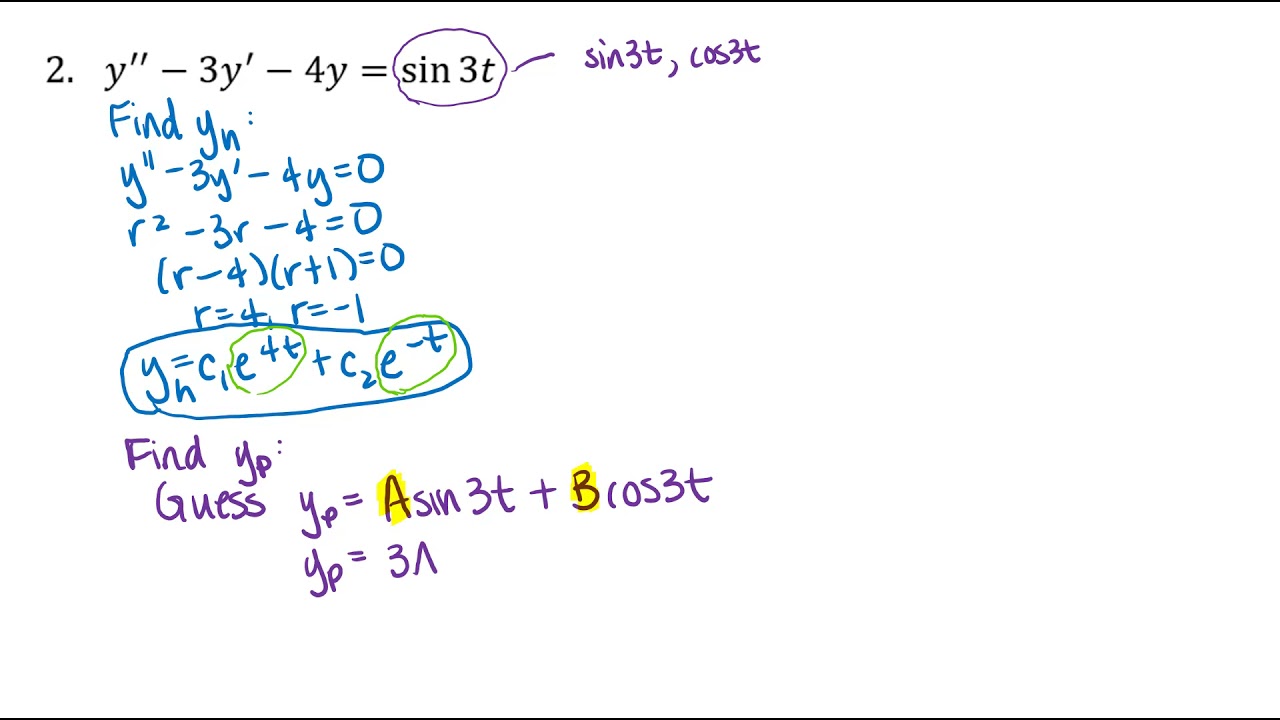 2. y′′ − 3y′ − 4y = sin 3t sin3t, cos3t
Find yₕ:
y'' - 3y' - 4y = 0
r² - 3r - 4 = 0
(r-4)(r+1) = 0
r = 4, r = -1
yₕ = c₁e^(4t) + c₂e^(-t)
Find yₚ:
Guess yₚ = A sin 3t + B cos3t
yₚ = 3Λ